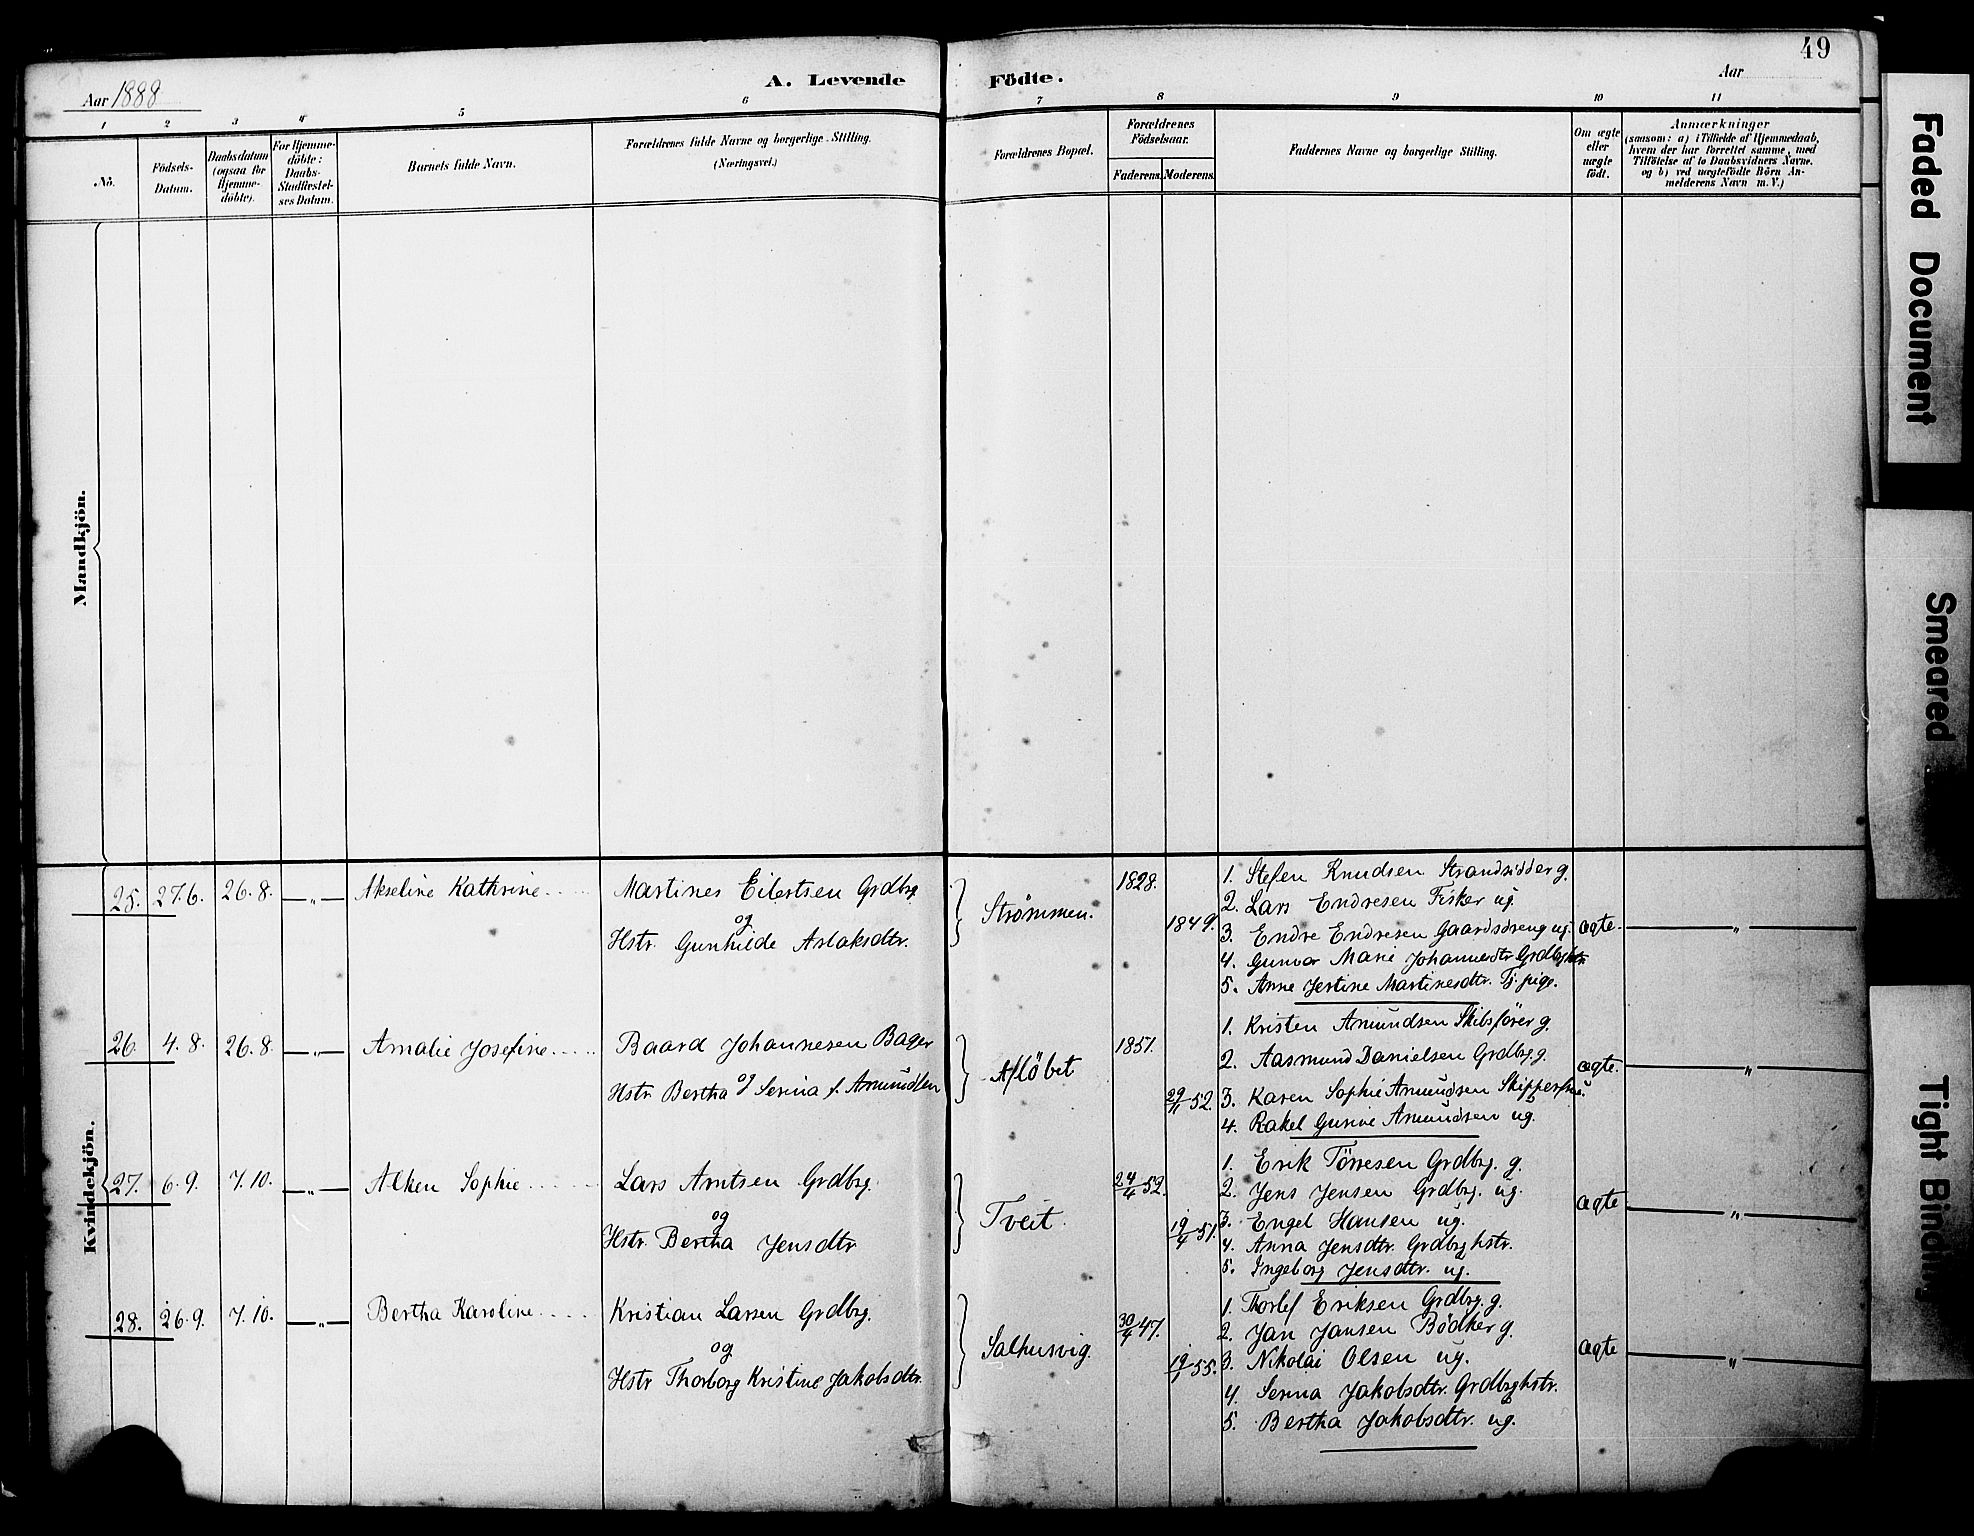 49
Aar 1888
A. Levende Födte.
Aar
1 2 3 4 5 6 7 8 9 10 11
No.
Födsels-
Datum.
Daabsdatum
(ogsaa for
Hjemme-
döbte).
For Hjemme-
döbte:
Daabs-
Stadfæstel-
ses Datum.
Barnets fulde Navn.
Forældrenes fulde Navne og borgerlige Stilling.
(Næringsvei.)
Forældrenes Bopæl.
Forældrenes
Födselsaar.
Faderens. Moderens.
Faddernes Navne og borgerlige Stilling.
Om ægte
eller
uægte
födt.
Anmærkninger
(saasom: a) i Tilfælde af Hjemmedaab,
hvem der har forrettet samme, med
Tilföielse af to Daabsvidners Navne.
og b) ved uægtefödte Börn An-
melderens Navn m. V.)
Mandkjön.
Kvindekjön.
25. 27.6. 26.8. — „ — Akseline Kathrine
Martines Eilertsen Grdbrg.
og
Hstr. Gunhilde Aslaksdtr.
Strømmen.
1828.
1849.
1. Stefen Knudsen Strandsidder g.
2. Lars Endresen Fisker ug.
3. Endre Endresen Gaardsdreng ug.
4. Gunvor Marie Johannesdtr Grdbrghstr.
5. Anne Jertine Martinesdtr. Tj. pige.
ægte. — „ —
26. 4.8. 26.8. — „ — Amalie Josefine
Baard Johannesen Bager
og
Hstr Bertha Serina f. Amundsen
Afløbet
1851.
29/11 52.
1. Kristen Amundsen Skibsfører g.
2. Aasmund Danielsen Grdbrg. g.
3. Karen Sophie Amundsen Skipperfrue.
4. Rakel Gurine Amundsen ug.
ægte. — „ —
27. 6.9. 7.10. — „ — Alken Sophie
Lars Arntsen Grdbrg.
og
Hstr. Bertha Jensdtr
Tveit.
24/4 52.
19/4 51.
1. Erik Törresen Grdbrg. g.
2. Jens Jensen Grdbrg. ug.
3. Engel Hansen ug.
4. Anna Jensdtr. Grdbrghstr.
5. Ingeborg Jensdtr. ug.
ægte — „ —
28. 26.9. 7.10. — „ — Bertha Karoline
Kristian Larsen Grdbrg.
og
Hstr Thorborg Kristine Jakobsdtr.
Salhusvig.
30/4 47.
19/1 55.
1. Thorlef Eriksen Grdbrg. g.
2. Jan Jansen Bödker g.
3. Nikolai Olsen ug.
4. Serina Jakobsdtr. Grdbrghstr.
5. Bertha Jakobsdtr. ug.
ægte — „ —
Faded Document
Smeared
Tight Binding